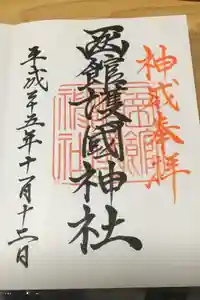 神威奉拝
函館護國神社
平成二十五年十一月十二日